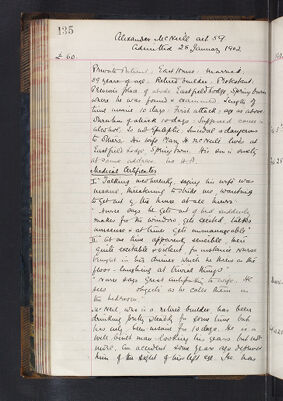 135
Alexander McNeill aet 59
Admitted 28 January 1902
£60.
Private Patient. East House. Married.
59 years of age. Retired builder. Protestant.
Previous place of abode Eastfield Lodge, Springburn
where he was found & examined. Length of
time insane 10 days. First attack; age on above
Duration of attack 10 days. Supposed cause =
alcohol. Is not epileptic. Suicidal & dangerous
to others. His wife Mary H McNeill lives at
Eastfield Lodge, Springburn. His son is
at same address.
Medical Certificates
I "Talking incoherently, saying his wife was
insane, threatening to strike me, wanting
to get out of the house at all hours"
Nurse says he gets out of bed suddenly
makes for the window gets excited talks
nonsense & at times gets unmanageable"
II "At one time apparently sensible, then
quite excitable & violent for instance Nurse
brought in his dinner which he threw on the
floor - laughing at trivial things"
Nurse says great antipathy to wife. He
sees objects as he calls them in
the bedroom"
Mr McNeill, who is a retired builder has been
drinking pretty steadily for some time but
has only been insane for 10 days. He is a
well built man looking his years but not
more. An accident some years ago deprived
him of the sight of his left eye. He has